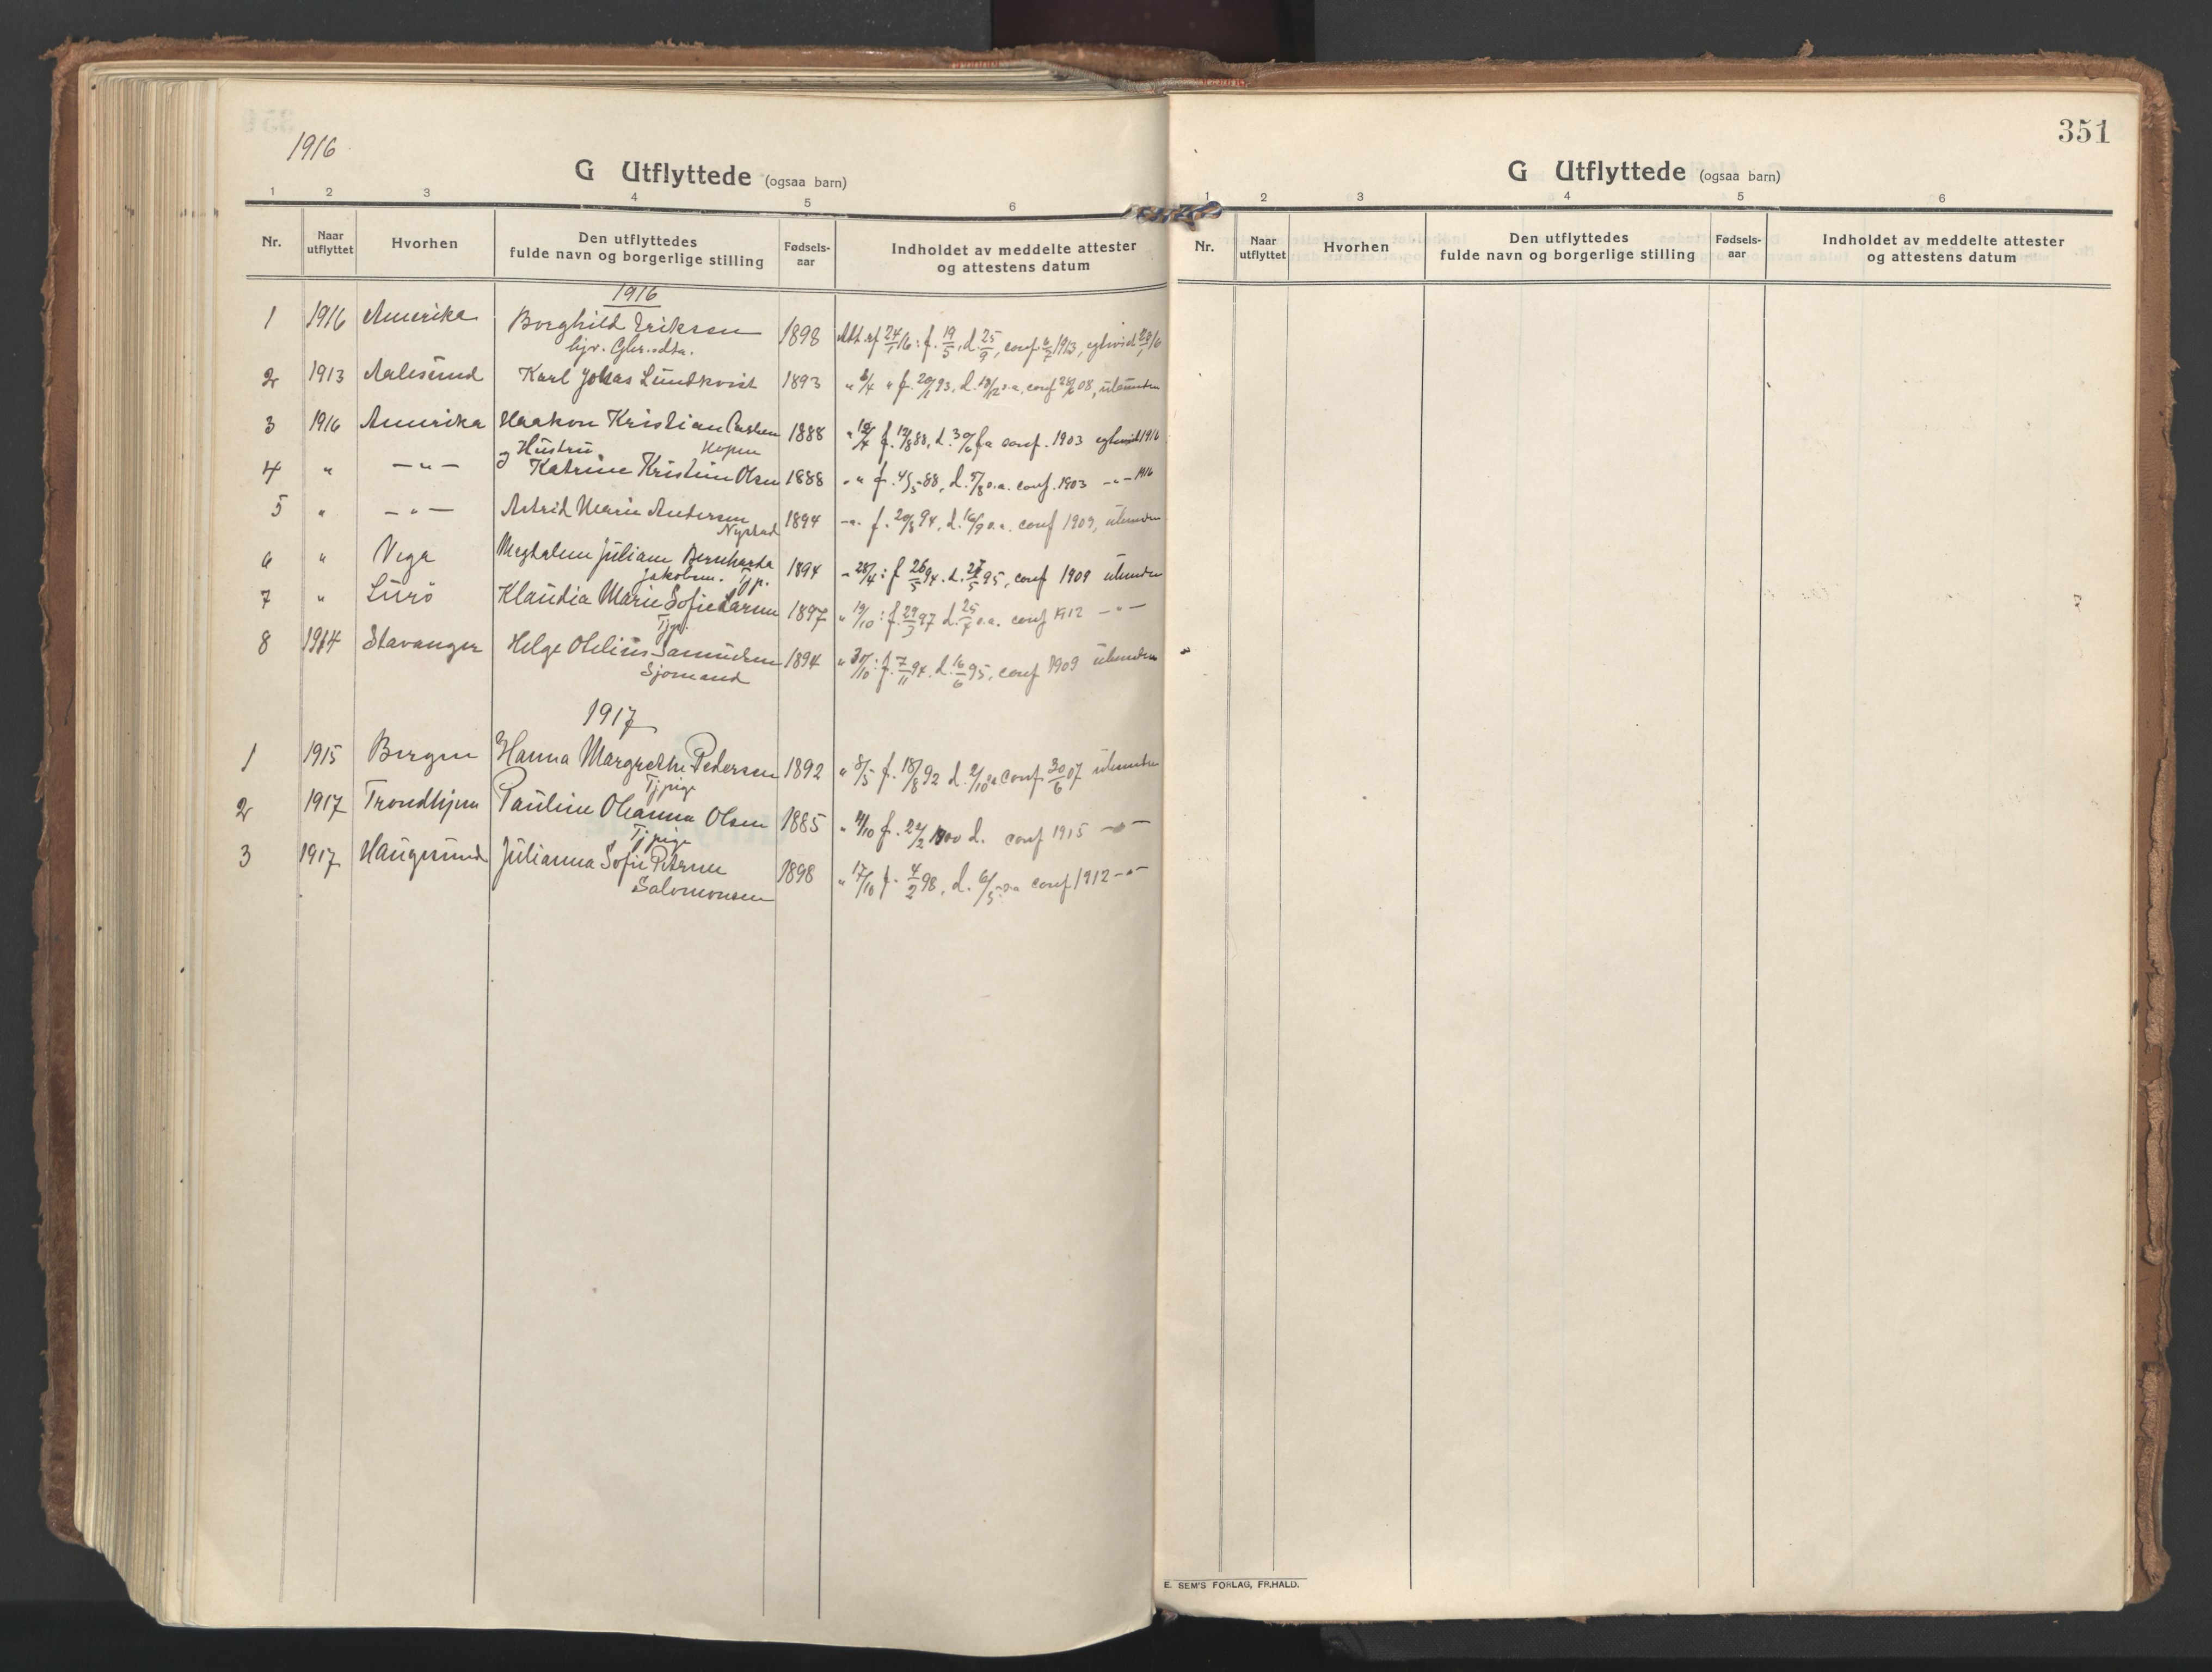 1916
G Utflyttede (ogsaa barn)
1 2 3 4 5 6
Nr. Naar utflyttet Hvorhen Den utflyttedes fulde navn og borgerlige stilling Fødsels-aar Indholdet av meddelte attester og attestens datum
1916
1 1916 Amerika Borghild Eriksen 1898 Att. af 24/1 16: f. 19/5, d. 25/9, conf. 6/7 1913,
2 1913 Aalesund Karl Johas Lundkvist 1893 " 6/4 " f. 20/1 93, d. 18/12 s.a. conf 28/6 08,
3 1916 Amerika Haakon Kristian 1888 f. 12/8 88, d. 30/6 conf. 1903 1916
og Hustru
4 " —"— Katrine Kristine Olsen 1888 " " f. 4/5 88, d. 5/8 s.a. conf. 1903 —"— 1916
5 " —"— Astrid Marie Andersen 1894 f. 20/8 94, d. 16/9 s.a. conf 1909,
Nystad
6 " Vega Magdalene Juliane Bernharda 1894 " 28/4: f 26/5 94. d. 27/5 95, conf 1909
Jakobsen. Tjp.
7 " Lurö Klaudia Marie Sofie Larsen 1897 " 19/10: f. 29/3 97 d. 25/7 s.a. conf 1912 —"—
Tjp.
8 1914 Stavanger Helge Otelius Samuelsen 1894 " 30/10: f. 7/11 94. d. 16/6 95, conf 1909
Sjømand
1917
1 1915 Bergen Hanna Margrethe Pedersen 1892 " 8/5 f. 18/8 92 d. 2/10 s.a. conf. 30/6 07
Tjpige
2 1917 Trondhjem Pauline Oleanna Olsen 1885 f. 22/2 1900 d. conf 1915 —"—
Tjpige
3 1917 Haugesund Julianna Sofie Petrine 1898 " 17/10 f. 4/2 98, d. 6/5 s.a. conf 1912 —"—
Salomonsen
351
G Utflyttede (ogsaa barn)
1 2 3 4 5 6
Nr. Naar utflyttet Hvorhen Den utflyttedes fulde navn og borgerlige stilling Fødsels-aar Indholdet av meddelte attester og attestens datum
E. SEM'S FORLAG, FR.HALD.